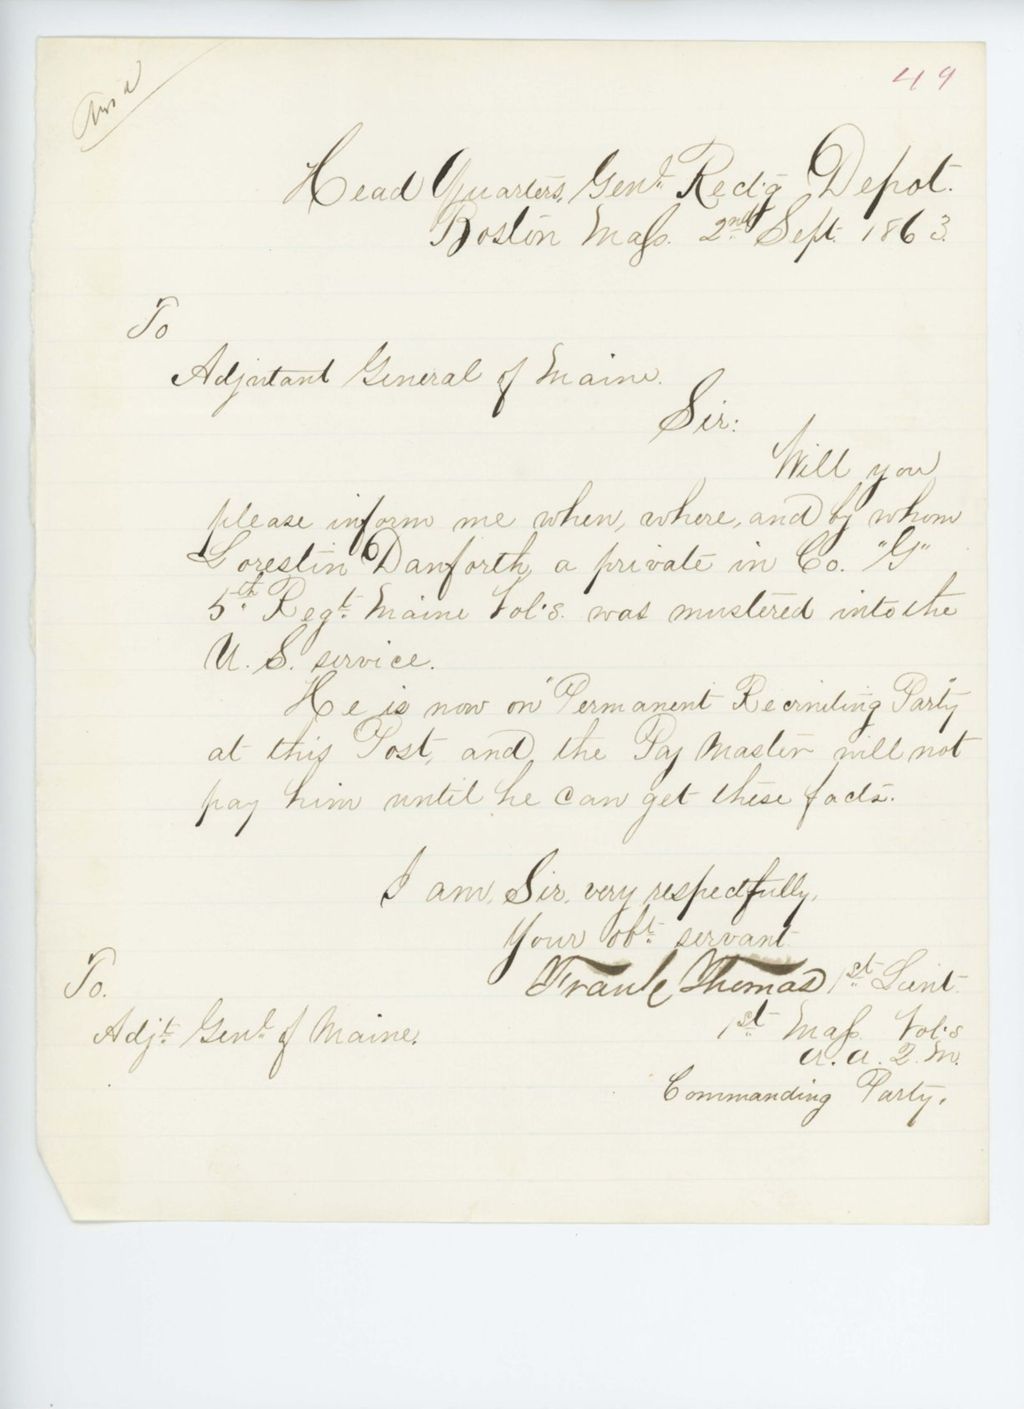 Ans'd
49
Head Quarters, Genl. Rec'd'g Depot.
Boston Mass. 2nd. Sept. 1863.
To
Adjutant General of Maine.
Sir:
Will you
please inform me when, where, and by whom
Lorestin Danforth, a private in Co. "G"
5th. Regt. Maine Vol's. was mustered into the
U. S. service.
He is now on "Permanent Recruiting Party"
at this Post, and the Pay Master will not
pay him until he can get these facts.
I am, Sir, very respectfully,
Your obt. servant
Frank Thomas 1st. Lieut.
1st. Mass. Vol's
A. A. Q. M.
Commanding Party.
To.
Adjt. Genl. of Maine.